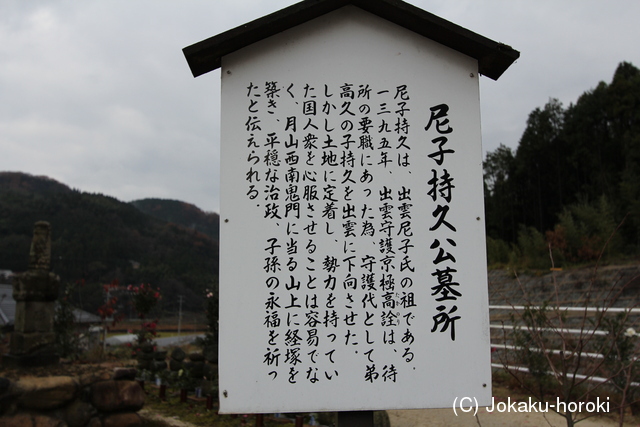 尼子持久公墓所
尼子持久は、出雲尼子氏の祖である。
一三九五年、出雲守護京極高詮は、侍
所の要職にあった為、守護代として弟
高久の子持久を出雲に下向させた。
しかし土地に定着し、勢力を持ってい
た国人衆を心服させることは容易でな
く、月山西南鬼門に当る山上に経塚を
築き、平穏な治政、子孫の永福を祈っ
たと伝えられる。
(C) Jokaku-horoki